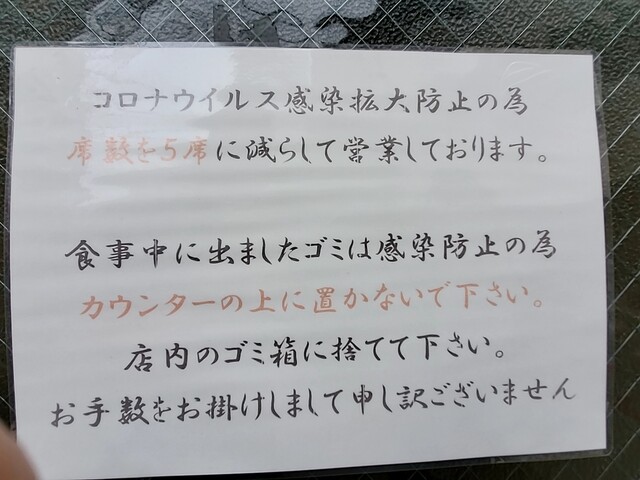 コロナウイルス感染拡大防止の為
席数を5席に減らして営業しております。
食事中に出ましたゴミは感染防止の為
カウンターの上に置かないで下さい。
店内のゴミ箱に捨てて下さい。
お手数をお掛けしまして申し訳ございません